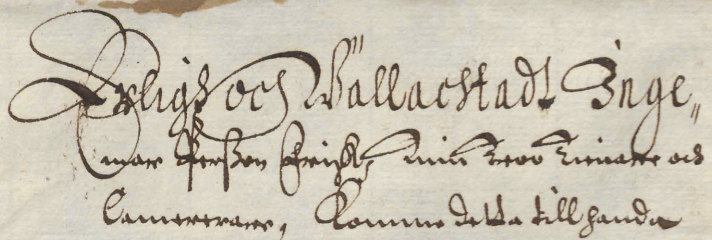 Erligh och Wällachtadt Inge„
mar Perßon Frijsk, min troo tienare och
Camererare, komme detta till handa